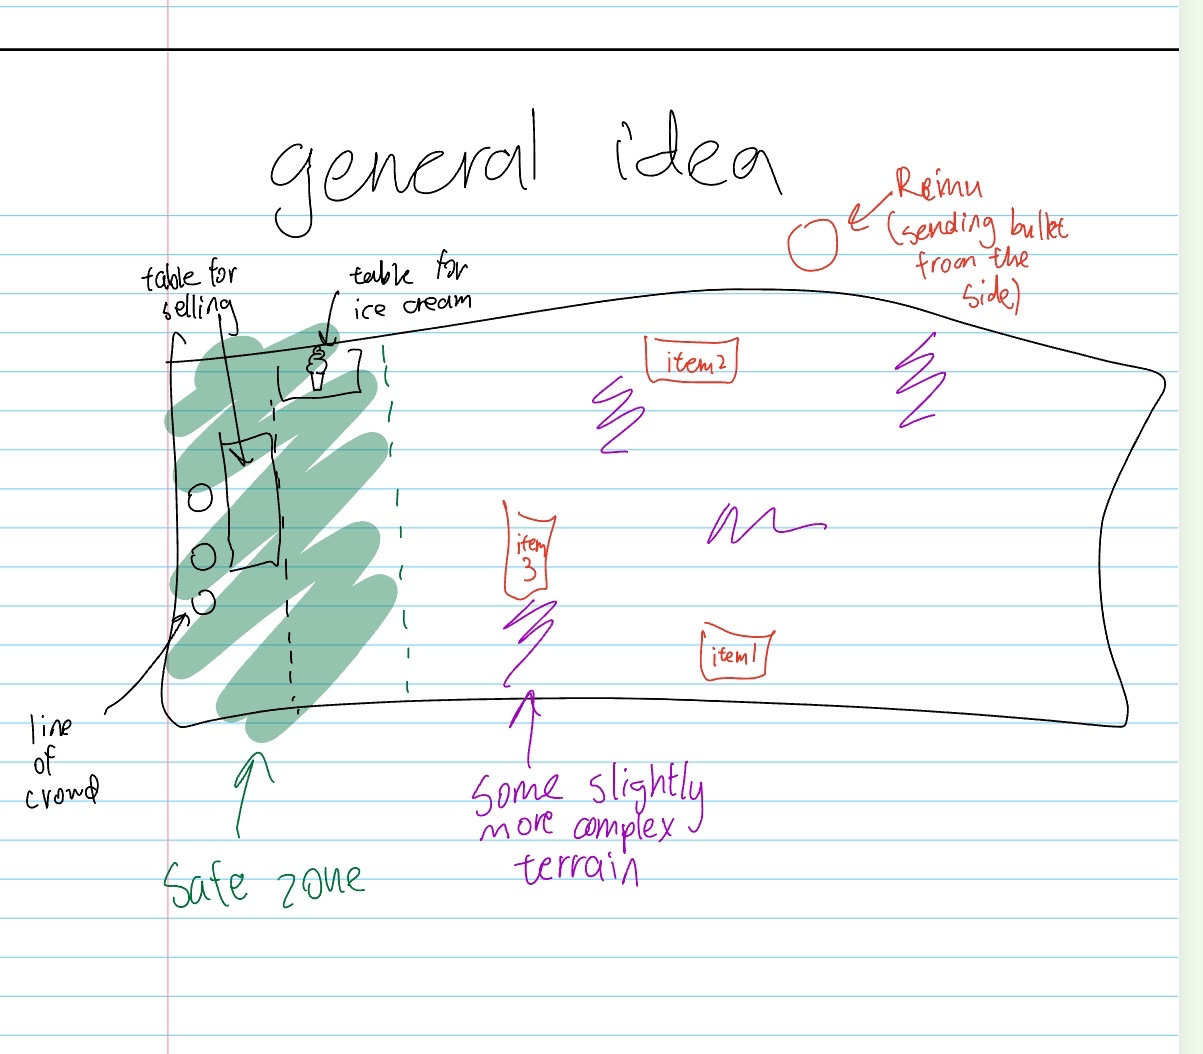 general idea
Reimu
(sending bullet
from the
side)
table for
selling
table for
ice cream
item2
item
3
item1
line
of
crowd
Some slightly
more complex
terrain
Safe zone